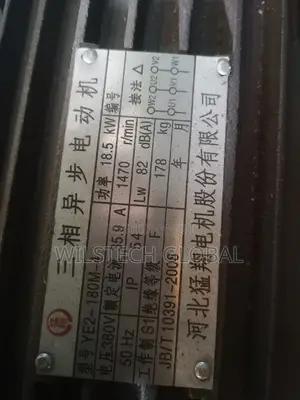 三相异步电动机
型号 YE2-180M- 功率 18.5 kW 编号
电压 380V 额定电流 35.9 A 1470 r/min 接法 △
50 Hz IP 54 Lw 82 dB(A)
工作制 S1 绝缘等级 F 178 kg
JB/T 10391-2008 年 月
河北猛翔电机股份有限公司
W2 U2 V2
U1 V1 W1
WILSTECH GLOBAL